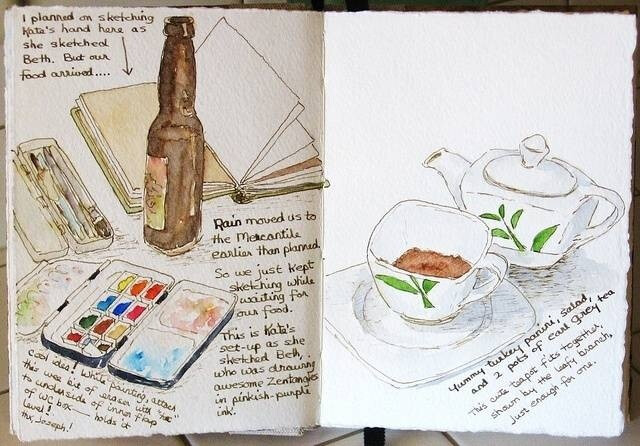 I planned on sketching
Kate's hand here as
she sketched
Beth. But our
food arrived....
Rain moved us to
the Mercantile
earlier than planned.
So we just kept
sketching while
waiting for
our food.
This is Kate's
set-up as she
sketched Beth,
who was drawing
awesome Zentangles
in pinkish-purple
ink.
Cool idea! While painting, attach
this wee bit of eraser with
to underside of inner flap
of WC box holds it
level!
thx, Joseph!
Yummy turkey panini, salad,
and 2 pots of earl grey tea
This cute teapot fits together,
shown by the leafy branch,
just enough for one.